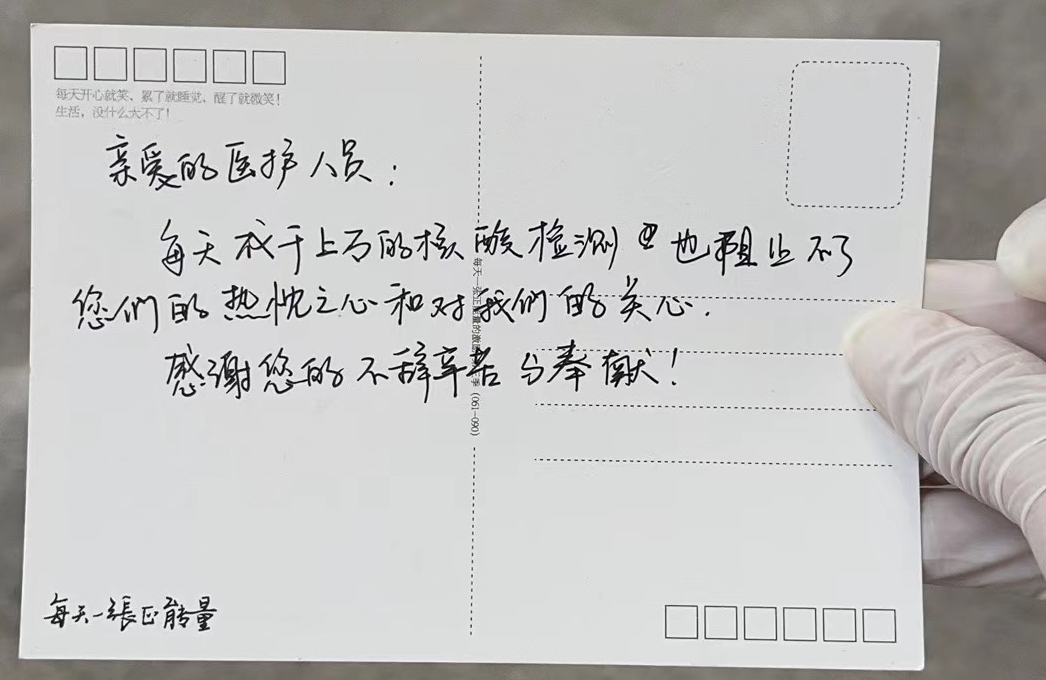 每天开心就笑、累了就睡觉、醒了就微笑!
生活，没什么大不了!
亲爱的医护人员：
每天成千上万的核酸检测也阻止不了
您们的热忱之心和对我们的关心.
感谢您的不辞辛苦与奉献!
每天一張正能量
(061—090)
每天一張正能量